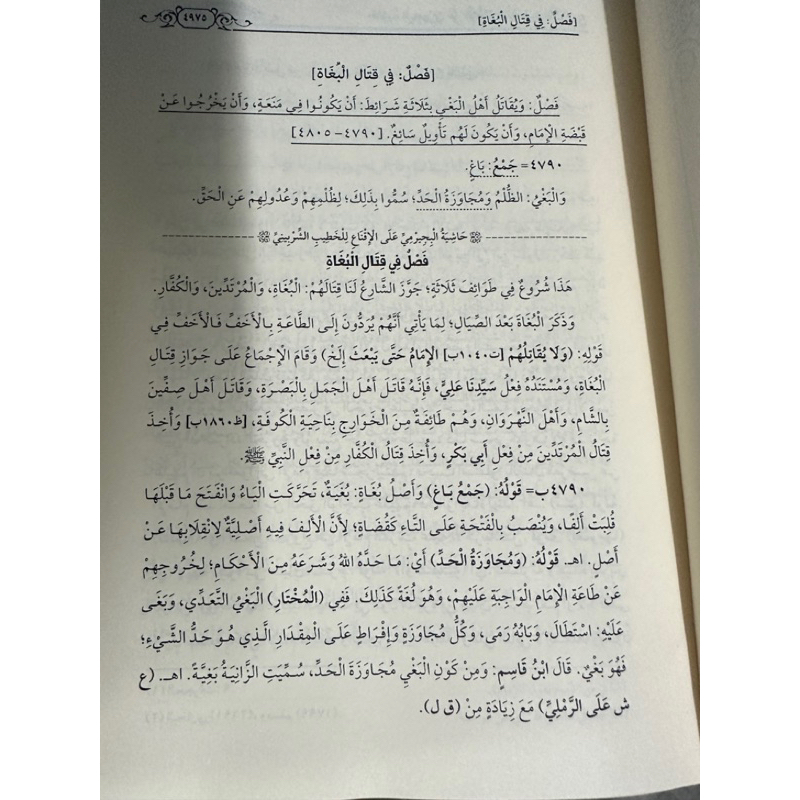 [فَصْلٌ: فِي قِتَالِ الْبُغَاةِ] ٤٩٧٥
[فَصْلٌ: فِي قِتَالِ الْبُغَاةِ]
فَصْلٌ: وَيُقَاتَلُ أَهْلُ الْبَغْيِ بِثَلَاثَةِ شَرَائِطَ: أَنْ يَكُونُوا فِي مَنَعَةٍ، وَأَنْ يَخْرُجُوا عَنْ
قَبْضَةِ الْإِمَامِ، وَأَنْ يَكُونَ لَهُم تَأْوِيلٌ سَائِغٌ. [٤٧٩٠-٤٨٠٥]
٤٧٩٠= جَمْعُ: بَاغٍ.
وَالْبَغْيُ: الظُّلْمُ وَمُجَاوَزَةُ الْحَدِّ؛ سُمُّوا بِذَلِكَ؛ لِظُلْمِهِمْ وَعُدُولِهِمْ عَنِ الْحَقِّ.
حَاشِيَةُ الْبِجِيرِمِيِّ عَلَى الْإِقْنَاعِ لِلْخَطِيبِ الشِّرْبِينِيِّ
فَصْلٌ فِي قِتَالِ الْبُغَاةِ
هَذَا شُرُوعٌ فِي طَوَائِفَ ثَلَاثَةٍ؛ جَوَّزَ الشَّارِعُ لَنَا قِتَالَهُمْ: الْبُغَاةِ، وَالْمُرْتَدِّينَ، وَالْكُفَّارِ.
وَذَكَرَ الْبُغَاةَ بَعْدَ الصِّيَالِ؛ لِمَا يَأْتِي أَنَّهُمْ يُرَدُّونَ إِلَى الطَّاعَةِ بِالْأَخَفِّ فَالْأَخَفِّ فِي
قَوْلِهِ: (وَلَا يُقَاتِلُهُمْ [ت١٠٤٠ب] الْإِمَامُ حَتَّى يَبْعَثَ إِلَخْ) وَقَامَ الْإِجْمَاعُ عَلَى جَوَازِ قِتَالِ
الْبُغَاةِ، وَمُسْتَنَدُهُ فِعْلُ سَيِّدِنَا عَلِيٍّ، فَإِنَّهُ قَاتَلَ أَهْلَ الْجَمَلِ بِالْبَصْرَةِ، وَقَاتَلَ أَهْلَ صِفِّينَ
بِالشَّامِ، وَأَهْلَ النَّهْرَوَانِ، وَهُمْ طَائِفَةٌ مِنَ الْخَوَارِجِ بِنَاحِيَةِ الْكُوفَةِ، [ظ١٨٦٠ب] وَأُخِذَ
قِتَالُ الْمُرْتَدِّينَ مِنْ فِعْلِ أَبِي بَكْرٍ، وَأُخِذَ قِتَالُ الْكُفَّارِ مِنْ فِعْلِ النَّبِيِّ ﷺ.
٤٧٩٠ب= قَوْلُهُ: (جَمْعُ بَاغٍ) وَأَصْلُ بُغَاةٍ: بُغَيَةٌ، تَحَرَّكَتِ الْيَاءُ وَانْفَتَحَ مَا قَبْلَهَا
قُلِبَتْ أَلِفًا، وَيُنْصَبُ بِالْفَتْحَةِ عَلَى التَّاءِ كَقُضَاةٍ؛ لِأَنَّ الْأَلِفَ فِيهِ أَصْلِيَّةٌ لِانْقِلَابِهَا عَنْ
أَصْلٍ. اهـ. قَوْلُهُ: (وَمُجَاوَزَةُ الْحَدِّ) أَيْ: مَا حَدَّهُ اللهُ وَشَرَعَهُ مِنَ الْأَحْكَامِ؛ لِخُرُوجِهِمْ
عَنْ طَاعَةِ الْإِمَامِ الْوَاجِبَةِ عَلَيْهِمْ، وَهُوَ لُغَةً كَذَلِكَ. فَفِي (الْمُخْتَارِ) الْبَغْيُ التَّعَدِّي، وَبَغَى
عَلَيْهِ: اسْتَطَالَ، وَبَابُهُ رَمَى، وَكُلُّ مُجَاوَزَةٍ وَإِفْرَاطٍ عَلَى الْمِقْدَارِ الَّذِي هُوَ حَدُّ الشَّيْءِ؛
فَهُوَ بَغْيٌ. قَالَ ابْنُ قَاسِمٍ: وَمِنْ كَوْنِ الْبَغْيِ مُجَاوَزَةَ الْحَدِّ، سُمِّيَتِ الزَّانِيَةُ بَغِيَّةً. اهـ. (ع
ش عَلَى الرَّمْلِيِّ) مَعَ زِيَادَةٍ مِنْ (ق ل).